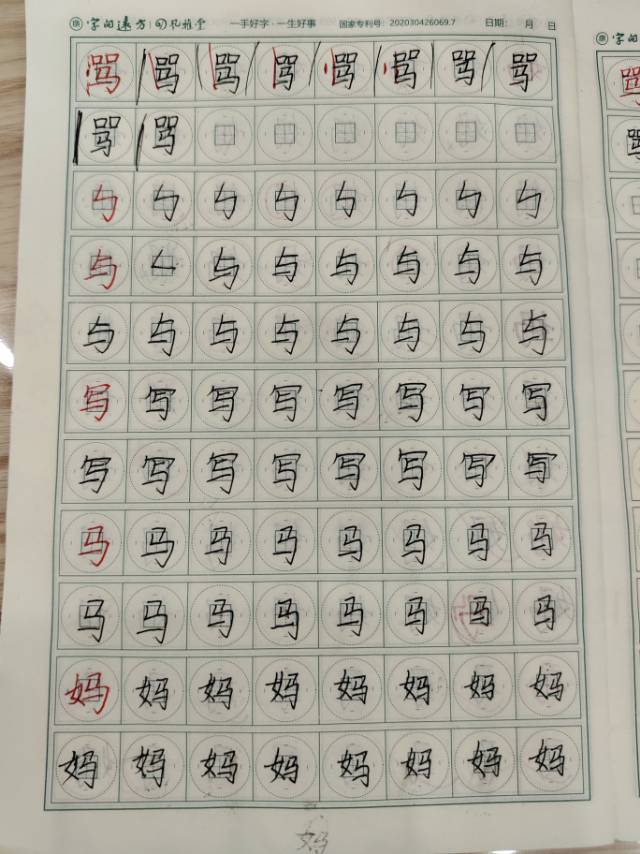 字的远方 | 包礼雅堂 一手好字·一生好事 国家专利号:202030426069.7 日期: 月 日
骂 骂 骂 骂 骂 骂 骂 骂
骂 骂
与 与 与 与 与 与 与 与
与 与 与 与 与 与 与
写 写 写 写 写 写 写 写
写 写 写 写 写 写 写 写
马 马 马 马 马 马 马 马
马 马 马 马 马 马 马 马
妈 妈 妈 妈 妈 妈 妈 妈
妈 妈 妈 妈 妈 妈 妈 妈
妈